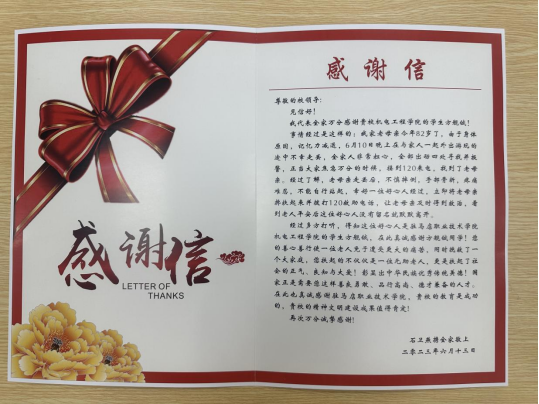 感谢信
LETTER OF
THANKS
感谢信
尊敬的校领导：
见信好！
我代表全家万分感谢贵校机电工程学院的学生方靓城！
事情经过是这样的：我家老母亲今年82岁了，由于身体
原因，记忆力减退，6月10日晚上在与家人一起外出游玩的
途中不幸走丢，全家人非常担心，全部出动四处寻找并报
警，正当大家焦急万分的时候，接到120来电，找到了老母
亲。经过了解，老母亲走丢后，不慎摔倒，手部骨折，疼痛
难忍，不能自行站起，幸好一位好心人经过，立即将老母亲
搀扶起来并拨打120救助电话，让老母亲及时得到救治，看
到老人平安后这位好心人没有留名就默默离开。
经过多方打听，得知这位好心人是驻马店职业技术学院
机电工程学院的学生方靓城，在此真诚感谢方靓城同学！您
的善心善行使一位老人免于遭受更大的痛苦，同时挽救了一
个大家庭，您扶起的不仅仅是一位无助老人，更是扶起了社
会的正气、良知与大爱！彰显出中华民族优秀传统美德！国
家正是需要您这样善良勇敢、品行高尚、德才兼备的人才。
在此也真诚感谢驻马店职业技术学院，贵校的教育是成功
的，贵校的精神文明建设成果值得肯定！
再次万分诚挚感谢！
携全家敬上
二〇二三年六月十三日